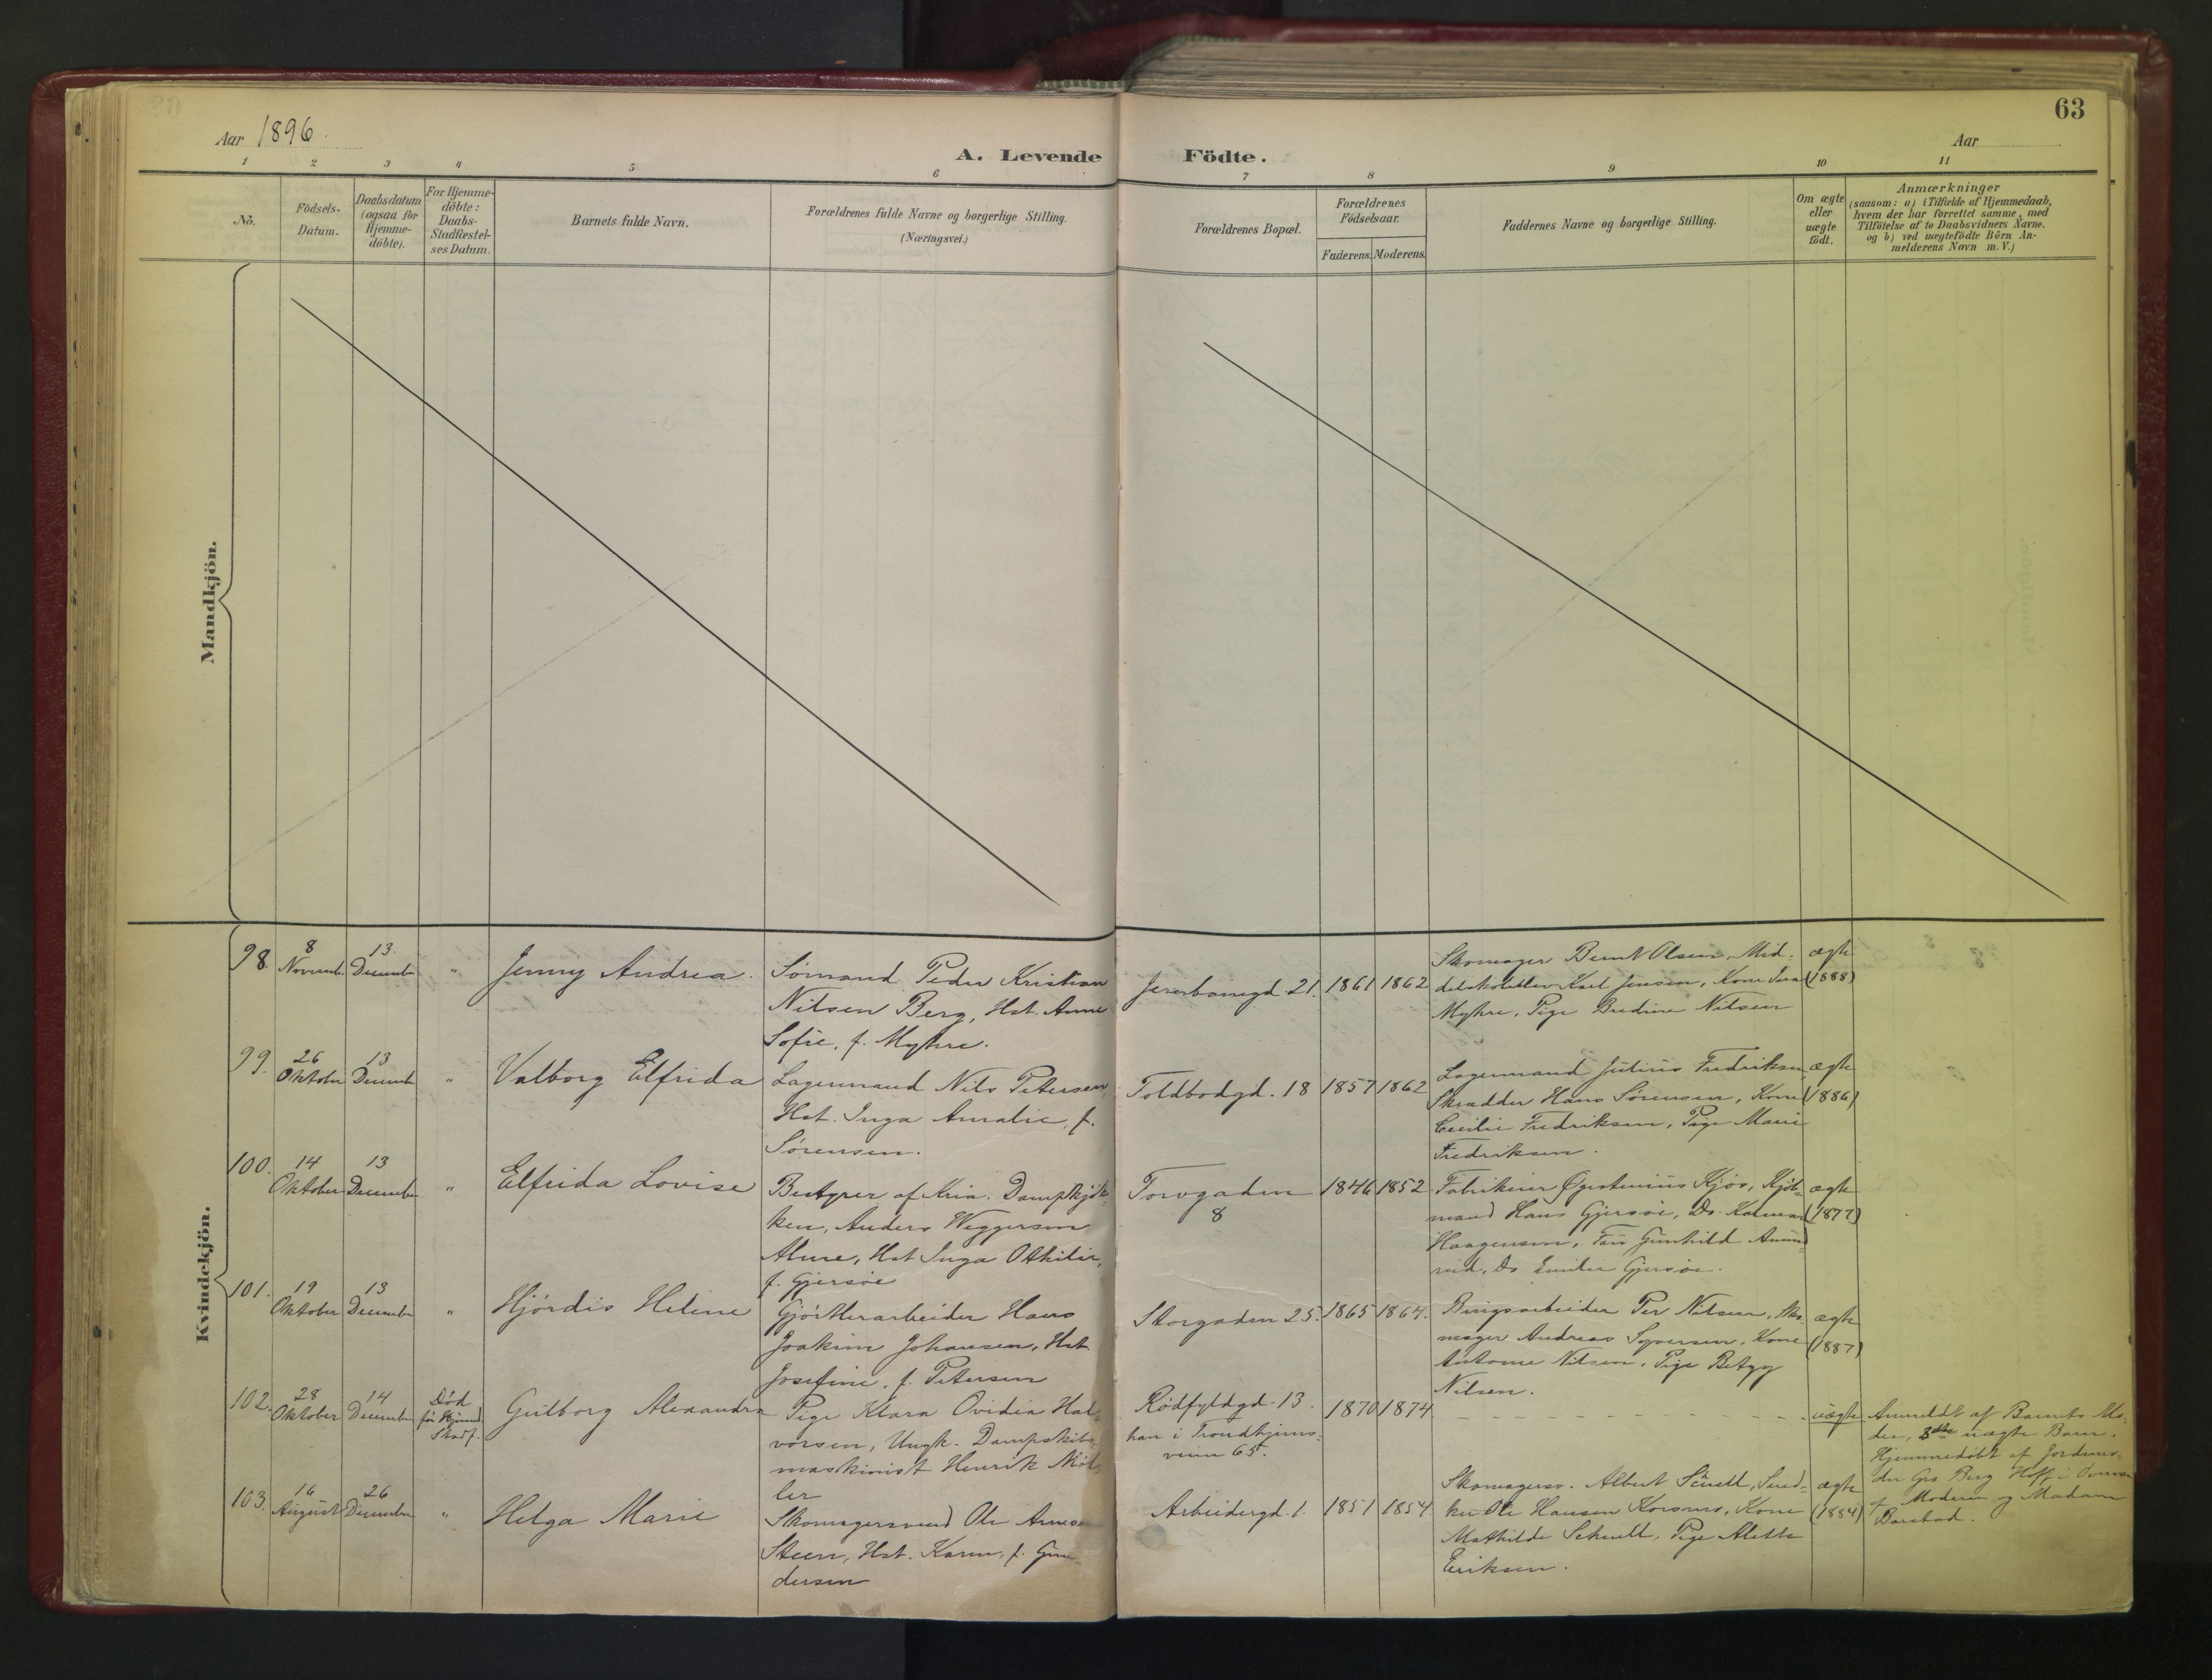 63
Aar 1896.
Aar
A. Levende Födte.
1 2 3 4 5 6 7 8 9 10 11
Nō.
Födsels-
Datum.
Daabsdatum
(ogsaa for
Hjemme-
döbte).
For Hjemme-
döbte:
Daabs-
Stadfæstel-
ses Datum.
Barnets fulde Navn.
Forældrenes fulde Navne og borgerlige Stilling.
(Næringsvei.)
Forældrenes Bopæl.
Forældrenes
Födselsaar.
Faderens. Moderens.
Faddernes Navne og borgerlige Stilling.
Om ægte
eller
uægte
födt.
Anmærkninger
(saasom: a) i Tilfælde af Hjemmedaab,
hvem der har forrettet samme, med
Tilföielse af to Daabsvidners Navne.
og b) ved uægtefödte Börn An-
melderens Navn m. V.)
Mandkjön.
Kvindekjön.
98. 8 Novemb. 13. December " Jenny Andrea.
Sömand Peder Kristian
Nilsen Berg, Hst. Anne
Sofie, f. Myhre.
21. 1861 1862
Skomager Bernt Olsen, Mid-
delskoleelev Karl Jensen, Kone
Myhre, Pige Bredine Nilsen
ægte
(1888)
99. 26 Oktober 13 December " Valborg Elfrida
Lagermand Nils Petersen,
Hst. Inga Amalie, f.
Sörensen.
Toldbodgd. 18 1857 1862
Lagermand Julius Fredriksen,
Skrædder Hans Sörensen, Kone
Cecilie Fredriksen, Pige Marie
Fredriksen.
ægte
(1886)
100. 14 Oktober 13 December " Elfrida Lovise
Bestyrer af Kria. Dampkjök-
ken, Anders Weggersen
Hst Inga Othilie,
f. Gjersöe
Torvgaden
8
1846 1852
Fabrikeier Kjös, Kjöb-
mand Hans Gjersöe, Do.
Haagensen, Gunhild
rud, Do Emilie Gjersöe.
ægte
(1877)
101. 19 Oktober 13 December " Hjördis Heline
Gjörtlerarbeider Hans
Joakim Johansen, Hst.
Josefine, f. Petersen
Storgaden 25. 1865 1864.
Per Nilsen, Sko-
mager Andreas Syversen, Kone
Antonie Nilsen, Pige Betzy
Nilsen.
ægte
(1887)
102. 28 Oktober 14 December
Död
för Hjemmed.
Stadf.
Gudborg Alexandra
Pige Klara Ovidia Hal-
vorsen, Ungk. Dampskibs-
maskinist Henrik Möl-
ler
Rödfyldgd. 13.
han i Trondhjems-
veien 65.
1870 1874
uægte
Anmeldt af Barnets Mo-
der, 3die uægte Barn.
Hjemmedöbt af Jordemo-
der Gro Berg Hoff i Overvær
af Moderen og Madam
103. 16 August 26 December " Helga Marie
Skomagersvend Ole Arnesen
Steen, Hst. Karen, f. Gun-
dersen
Arbeidergd. 1. 1851 1854
Skomagersv. Albert Schnell, Sned-
ker Ole Hansen Korsnes, Kone
Mathilde Schnell, Pige Alette
Eriksen.
ægte
(1884)